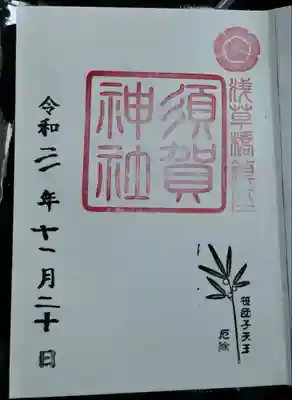 淺草橋鎮座
須賀
神社
笹団子天王
厄除
令和二年十一月二十日